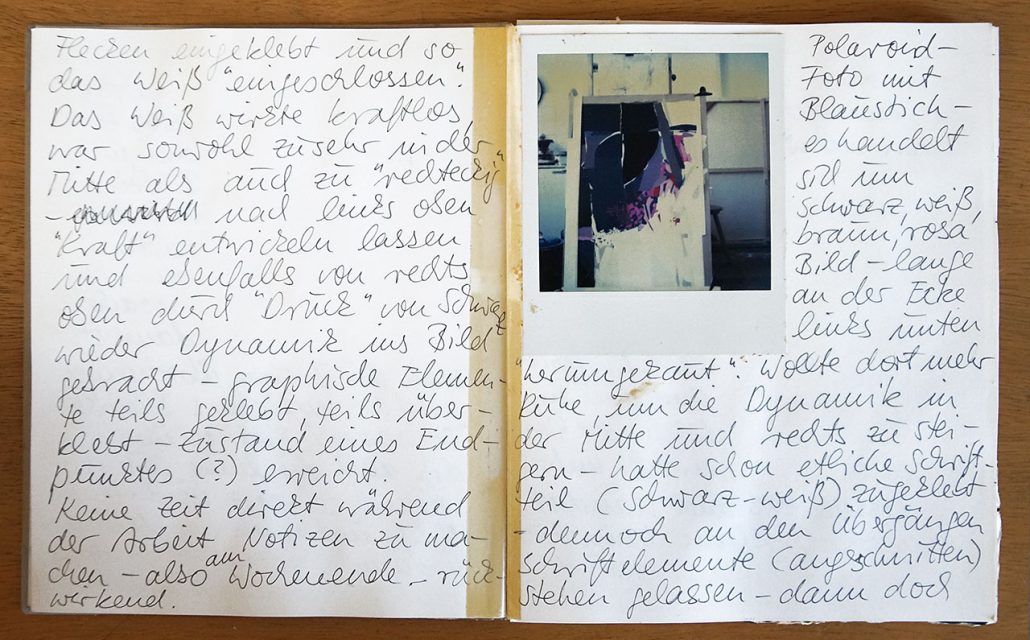 Flecken eingeklebt und so
das Weiß "eingeschlossen".
Das Weiß wirkte kraftlos,
war sowohl zusehr in der
Mitte als auch zu "rechteckig"
- nach links oben
"Kraft" entwickeln lassen
und ebenfalls von rechts
oben durch "Druck" von Schwarz
wieder Dynamik ins Bild
gebracht – graphische Elemen-
te teils geklebt, teils über-
klebt – Zustand eines End-
punktes (?) erreicht.
Keine Zeit direkt während
der Arbeit Notizen zu ma-
chen – also am Wochenende – rück-
wirkend.
Polaroid-
Foto mit
Blaustich –
es handelt
sich um
schwarz, weiß,
braun, rosa
Bild – lange
an der Ecke
links unten
"herumgekaut". Wollte dort mehr
Ruhe, um die Dynamik in
der Mitte und rechts zu stei-
gern – hatte schon etliche Schrift-
teile (schwarz-weiß) zugeklebt
- dennoch an den Übergängen
Schriftelemente (angschnitten)
stehen gelassen – dann doch